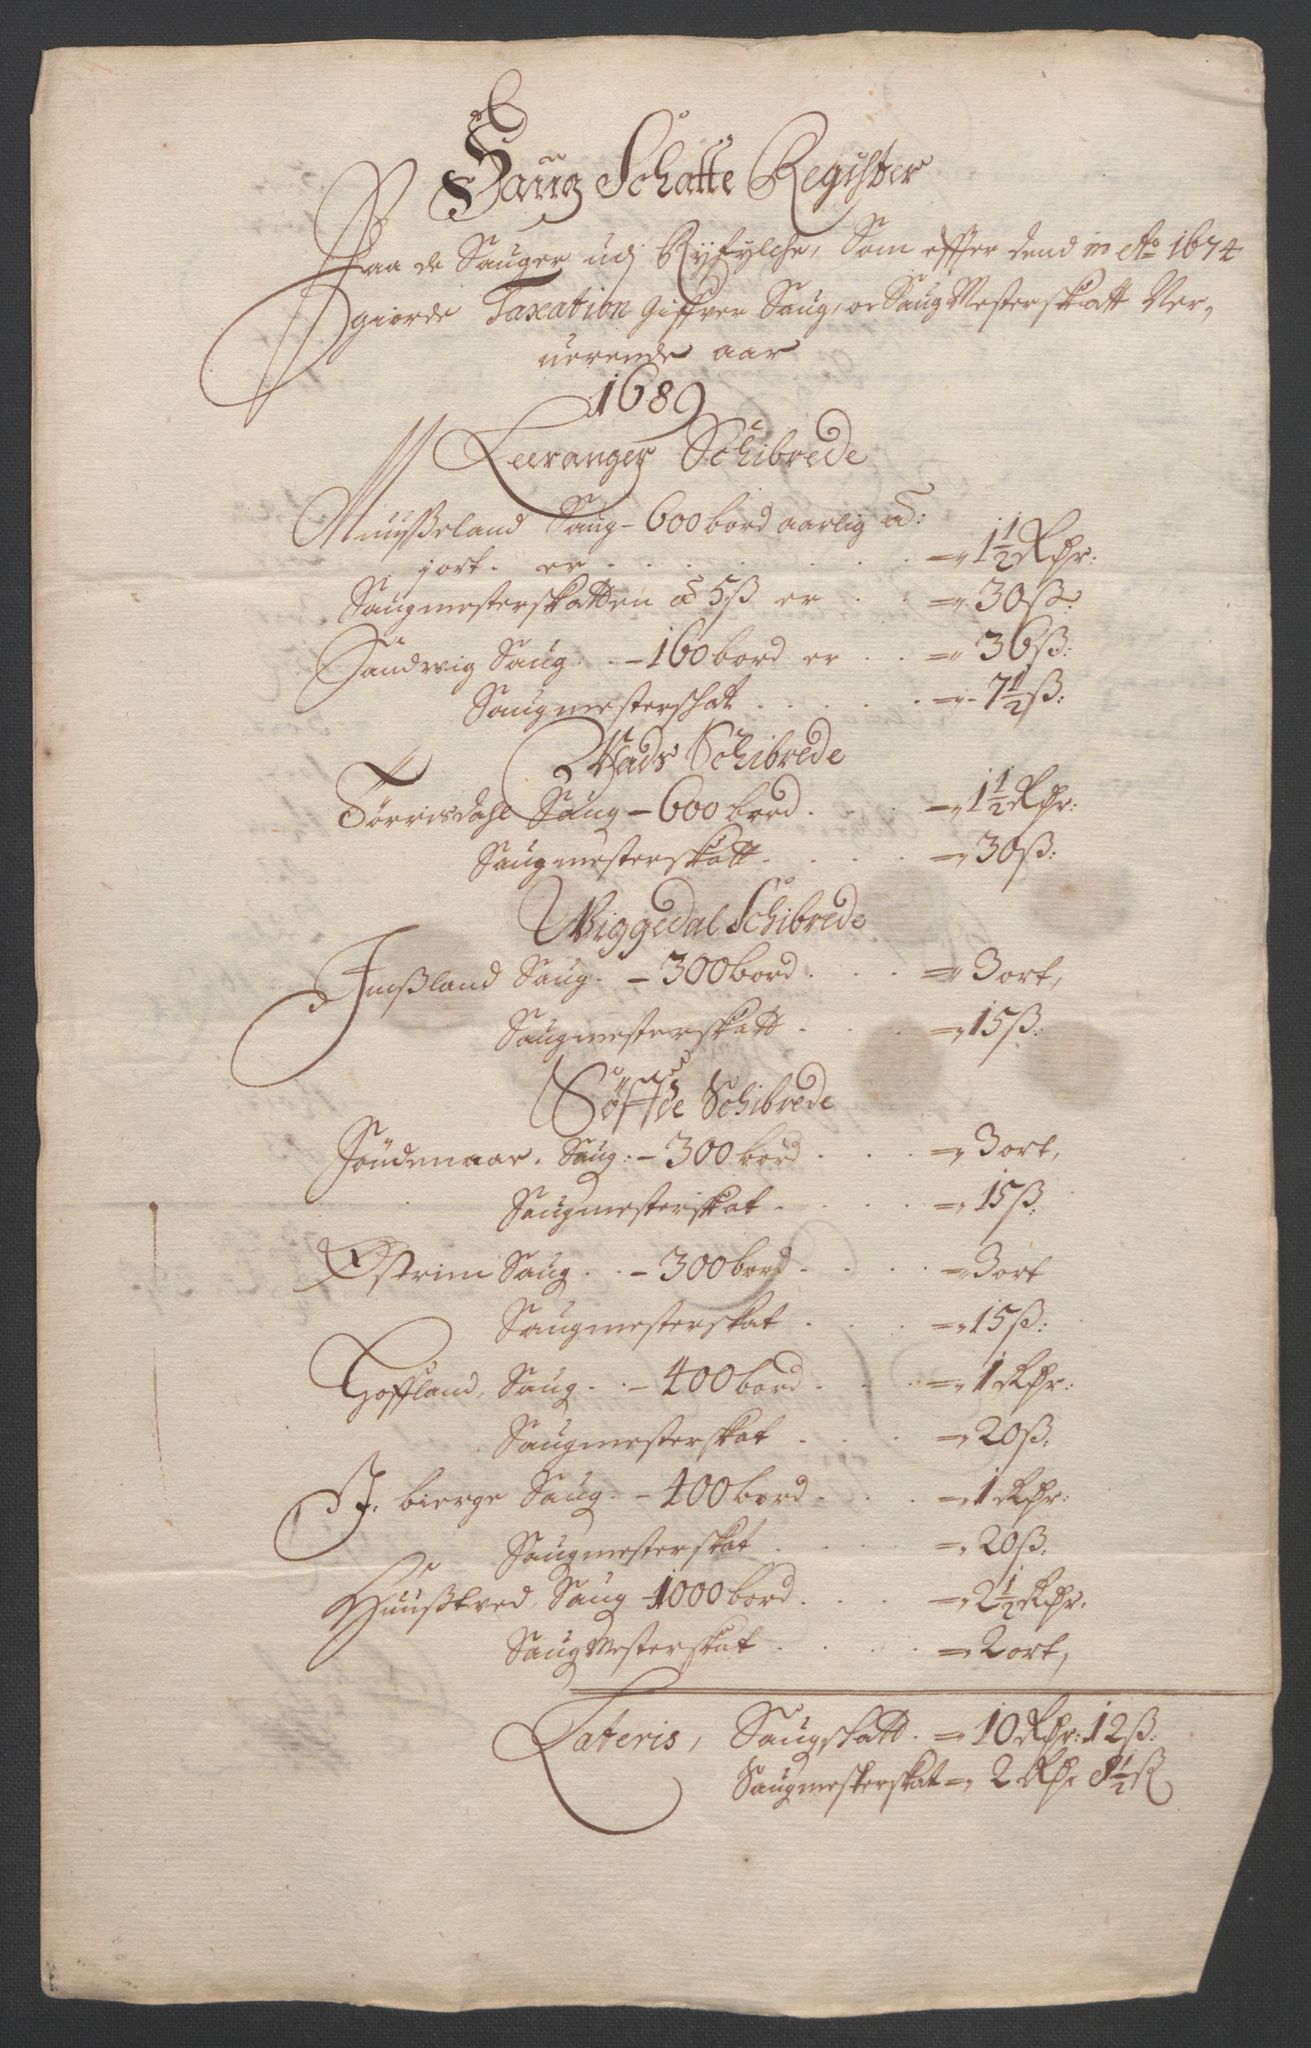 Saug Schatte Register
Paa de Sauger udj Ryfylche, Som effter dend in Ao 1674
giorde Taxation giffver Saug, oc Saug Mesterskatt Ner„
uerende aar
1689
Leeranger Schibrede
Muusseland Saug – 600 bord aarlig â:
j ort. er . . . . . . = „ 1½ Rdr:
Saugmesterskatten â 5 ß er . . = „ 30 ß:
Sandwig Saug . . – 160 bord er . . = „ 36 ß:
Saugmesterschat . . . . . = „ 7½ ß:
Wads Schibrede
Tørrisdahl Saug – 600 bord . . . = „ 1½ Rdr:
Saugmesterskatt . . . . = „ 30 ß:
Wiggedal Schibrede
Imßland Saug . – 300 bord . . . = „ 3 ort,
Saugmesterskatt . . . = „ 15 ß:
Søffde Schibrede
Søudenaar. Saug: – 300 bord . . . = „ 3 ort,
Saugmesterskat . . . . = „ 15 ß:
Østrim Saug . . – 300 bord . . . . = „ 3 ort
Saugmesterskat . . . . = „ 15 ß:
Hoffland, Saug . . – 400 bord . . . . = „ 1 Rdr:
Saugmesterskat . . . = „ 20 ß:
J. bierge Saug . – 400 bord . . . = „ 1 Rdr:
Saugmesterskat . . . . = „ 20 ß:
Huußtved, Saug – 1000 bord . . . = „ 2½ Rdr:
Saug Mesterskat . . . . = „ 2 ort,
Lateris, Saugskatt . = „ 10 Rdr: 12 ß:
Saugmesterskat = „ 2 Rdr 8½ ß